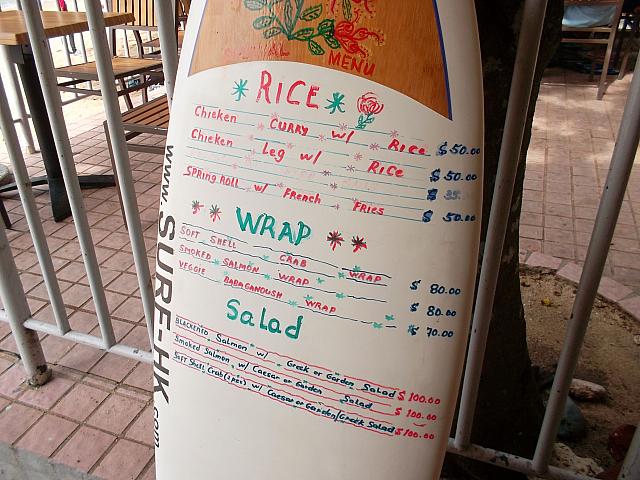 MENU
RICE
Chicken CURRY w/ Rice $50.00
Chicken Leg w/ Rice $50.00
$ 35.
SPRING ROLL w/ French Fries $50.00
WRAP
SOFT SHELL CRAB WRAP $80.00
SMOKED SALMON WRAP $80.00
VEGGIE BABAGANOUSH WRAP $70.00
Salad
BLACKENED Salmon w/ Greek or Garden Salad $100.00
Smoked Salmon w/ Caesar or Garden Salad $100.00
Soft Shell Crab w/ Caesar or Garden/Greek Salad $100.00
www.SURF-HK.com